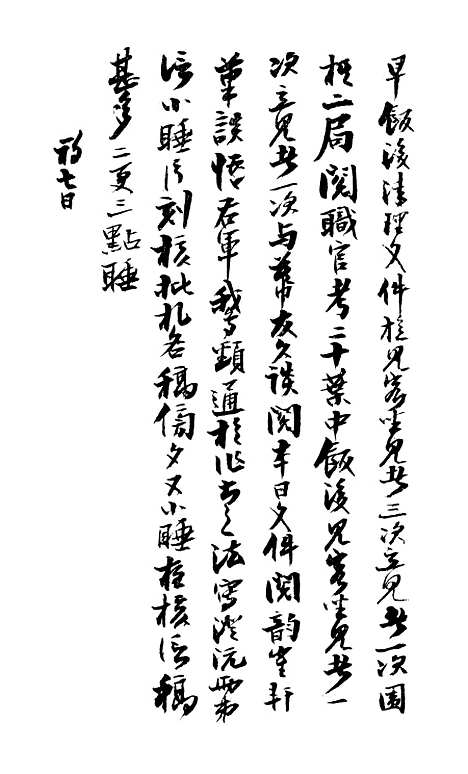 早飯後清理文件旋見客坐見者三次立見者一次圍
棋二局閱職官考二十葉中飯後見客坐見者一
次立見者一次与幕友久談閱本日文件閱韵軒
談悟右軍鵞頸通於作書之法寫澄沅兩弟
信小睡片刻核批札各稿傍夕又小睡夜核信稿
甚多二更三點睡
初七日